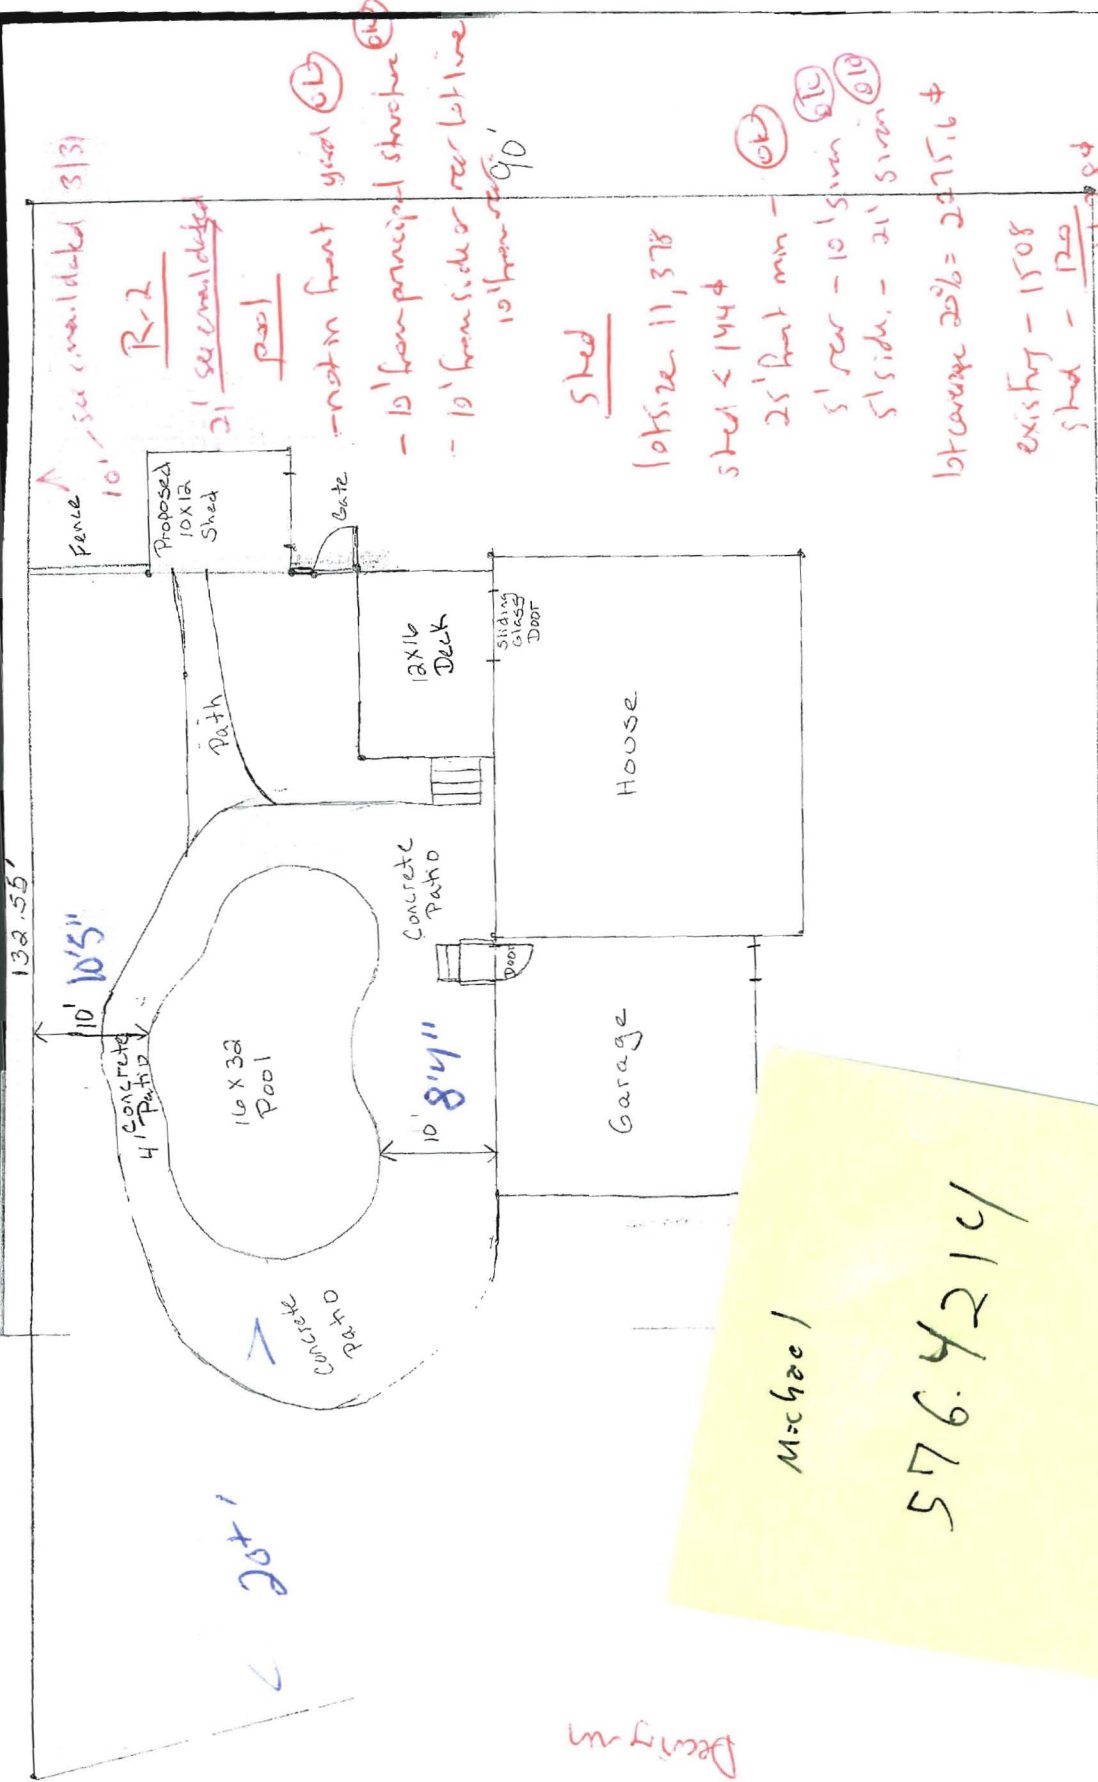 132.55'
10'
10'5"
4' Concrete
Patio
16 x 32
Pool
10'
8'4"
Concrete
Patio
Concrete
Patio
20+'
Path
Fence
Proposed
10x12
Shed
Gate
12x16
Deck
Sliding
Glass
Door
Door
House
Garage
90'
10' see email dated 3/31
R-2
21' see email dated
Pool
- not in front yard ok
- 10' from principal structure ok
- 10' from side or rear lot line
10' from rear
Shed
lot size 11,378
shed < 144 ϕ
25' front min - ok
5' rear - 10' given ok
5' side - 21' given ok
lot coverage 20% = 2275.6 ϕ
existing - 1508
shed - 120
Michael
576.4214